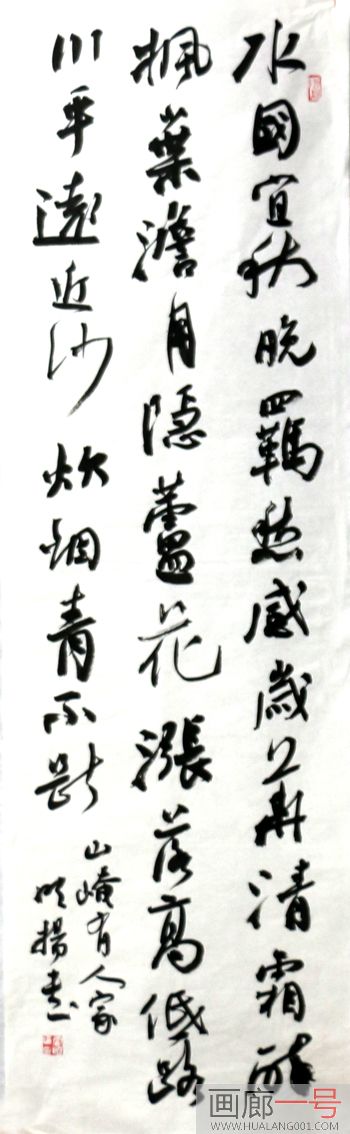 水國宜秋晚羈愁感歲華清霜醉
楓葉澹月隱蘆花漲落高低路
川平遠近沙炊烟青不斷
山崦有人家
明揚書
画廊一号
WWW.HUALANG001.COM